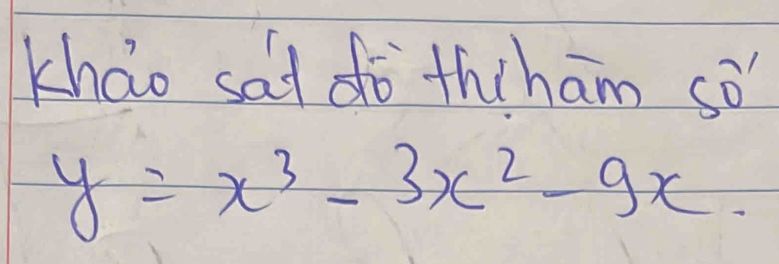 Khảo sát đồ thị hàm số
y = x³ - 3x² - 9x.